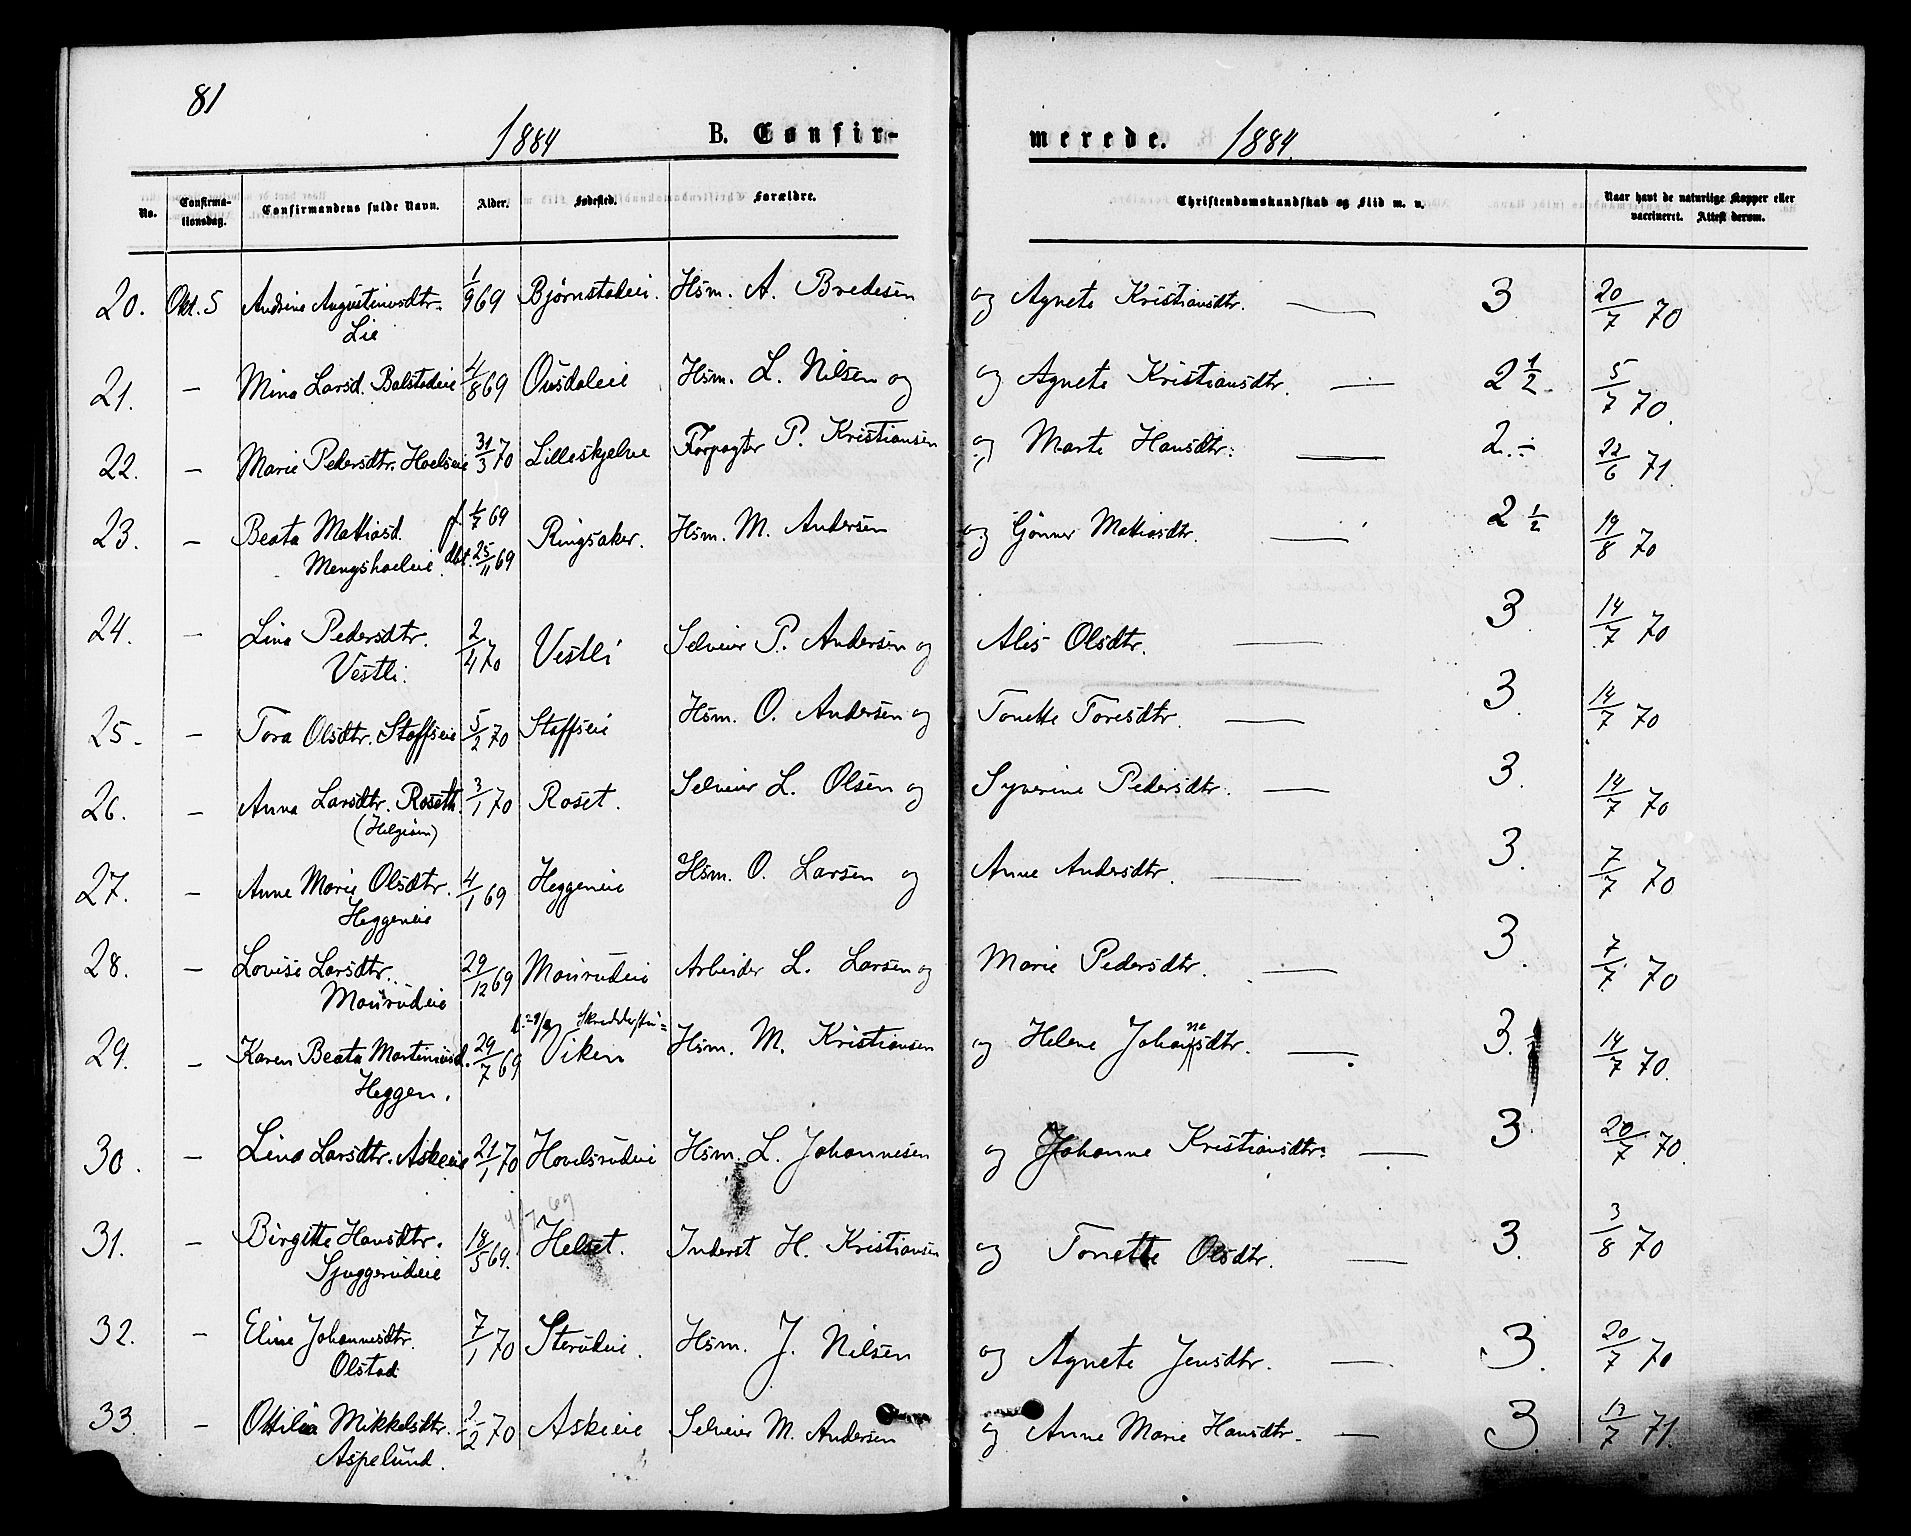 81
1884 B. Confir- merede. 1884.
No. Confirma-tionsdag. Confirmandens fulde Navn. Alder. Fødested. Forældre. Christendomskundskab og Flid m. v. Naar havt de naturlige Kopper eller vaccineret. Attest derom.
20. Okt. 5 Andrine Augustinusdtr. 1/9 69 Bjørnstadeie. Hsm. A. Bredesen og Agnete Kristiansdtr. — 3 20/7 70
Lie
21. — Mina Larsd. Balstadeie 4/8 69 Ousdaleie Hsm. L. Nilsen og og Agnete Kristiansdtr. — 2 1/2 5/7 70.
22. — Marie Pedersdtr. Hoelseie 31/3 70 Lilleskjelve Forpagter P. Kristiansen og Marte Hansdtr. — 2.÷ 22/6 71.
23. — Beata Matiasd. f 1/7 69 Ringsaker. Hsm. M. Andersen og Gønner Matiasdtr. — 2 1/2 19/8 70
Mengshoeleie. dbt. 25/11 69
24. — Lina Pedersdtr. 2/4 70 Vestli Selveier P. Andersen og Alis Olsdtr. — 3 14/7 70
Vestli.
25. — Tora Olsdtr. Staffseie 5/2 70 Staffseie Hsm. O. Andersen og Tonette Toresdtr. — 3. 14/7 70
26. — Anna Larsdtr. Roseth. 3/1 70 Roset. Selveier L. Olsen og Syverine Pedersdtr. — 3. 14/7 70
27. — Anne Marie Olsdtr. 4/1 69 Heggeneie Hsm. O. Larsen og Anne Andersdtr. — 3. 7/7 70
Heggeneie
28. — Lovise Larsdtr. 29/12 69 Maurudeie Arbeider L. Larsen og Marie Pedersdtr. — 3. 7/7 70
Maurudeie
29. — Karen Beata Martinusd. 29/7 69 Viken Hsm. M. Kristiansen og Helene Johannsdtr. — 3. 14/7 70.
Heggen.
30. — Lina Larsdtr. Askeie 21/1 70 Hovelsrudeie Hsm. L. Johannesen og Johanne Kristiansdtr. — 3 20/7 70.
31. — Birgitte Hansdtr. 18/5 69. Helset. Inderst H. Kristiansen og Tonette Olsdtr. — 3. 3/8 70
Sjuggerudeie
32. — Eline Johannesdtr. 7/1 70 Sterudeie. Hsm. J. Nilsen og Agnete Jensdtr. — 3. 20/7 70
Olstad
33. — Ottilia Mikkelsdtr. 2/2 70 Askeie Selveier M. Andersen og Anne Marie Hansdtr. — 3. 13/7 71.
Aspelund.